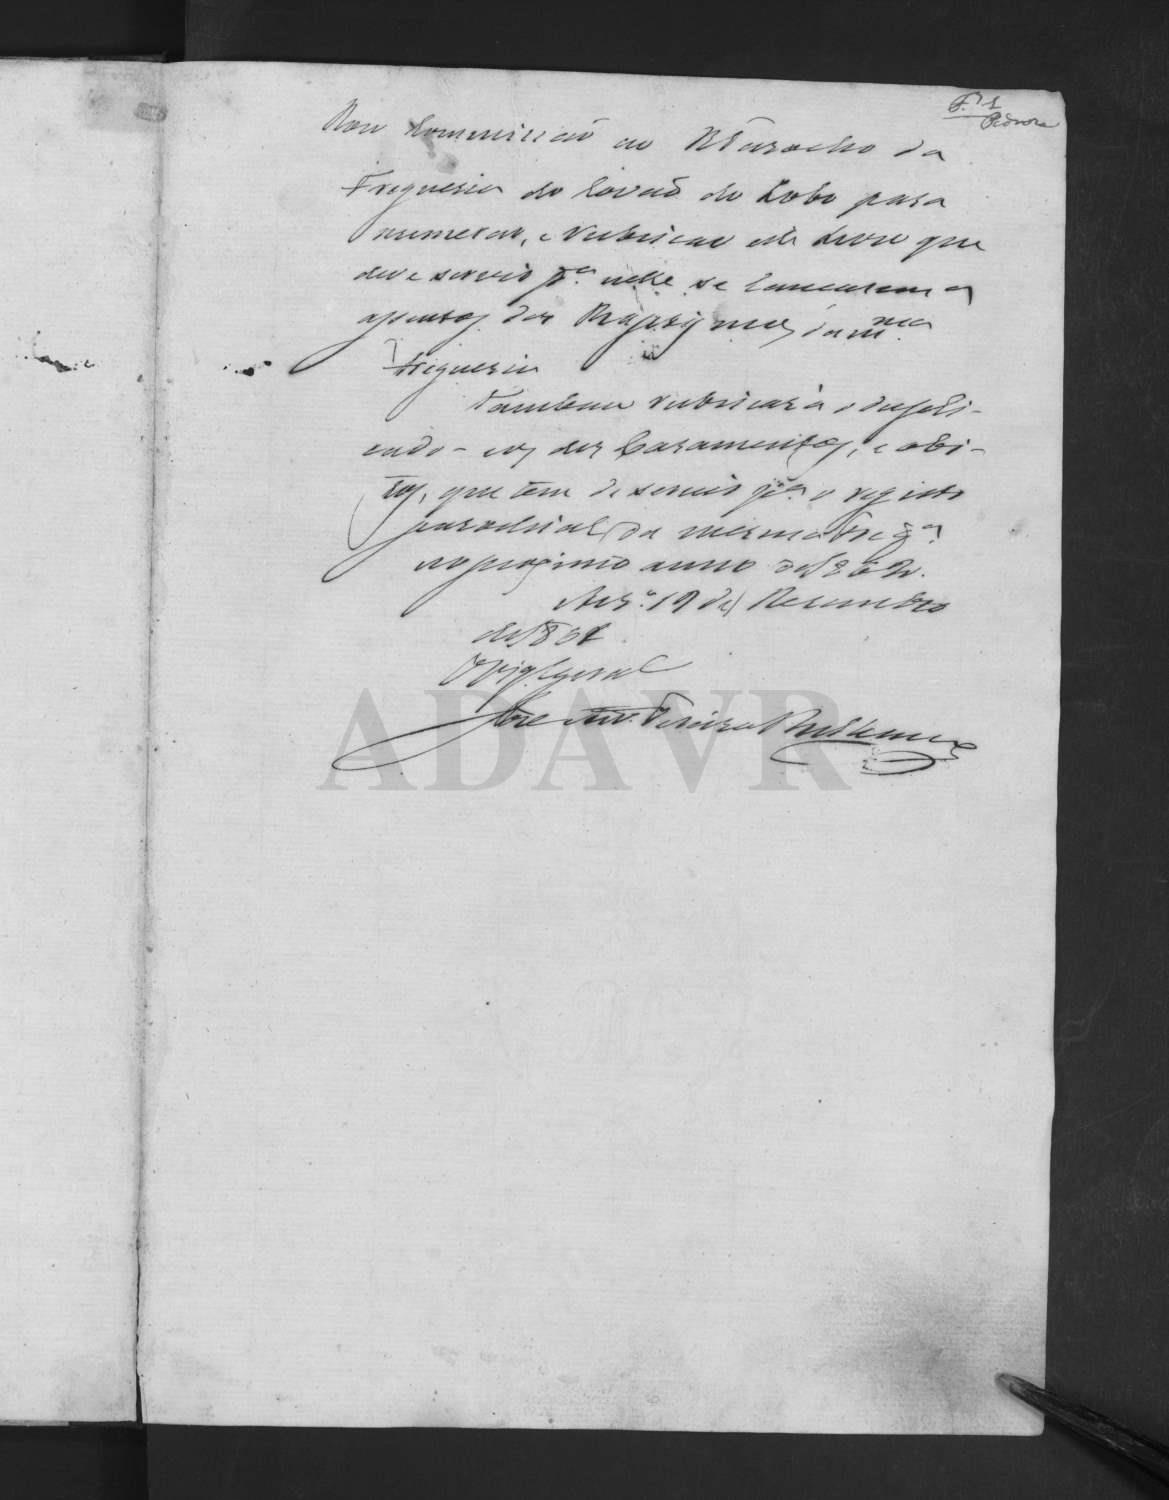 F. 1
Pedroza
Dou Commissaõ ao R Parocho da
Freguesia do Covaõ do Lobo para
numerar, e Rubricar este Livro que
deve servir pª. nelle se lancarem os
assentos dos Baptismos da mma.
Freguesia
Tambem rubricará o dupli-
cado - e os dos Casamentos, e obi-
tos, que tem de servir pª. o registo
parochial da mesma Fregª.
no proximo anno de 1862.
Avrº. 19 de Desembro
de 1861.
O Vigº Geral
José Anº. Pereira
ADAVR